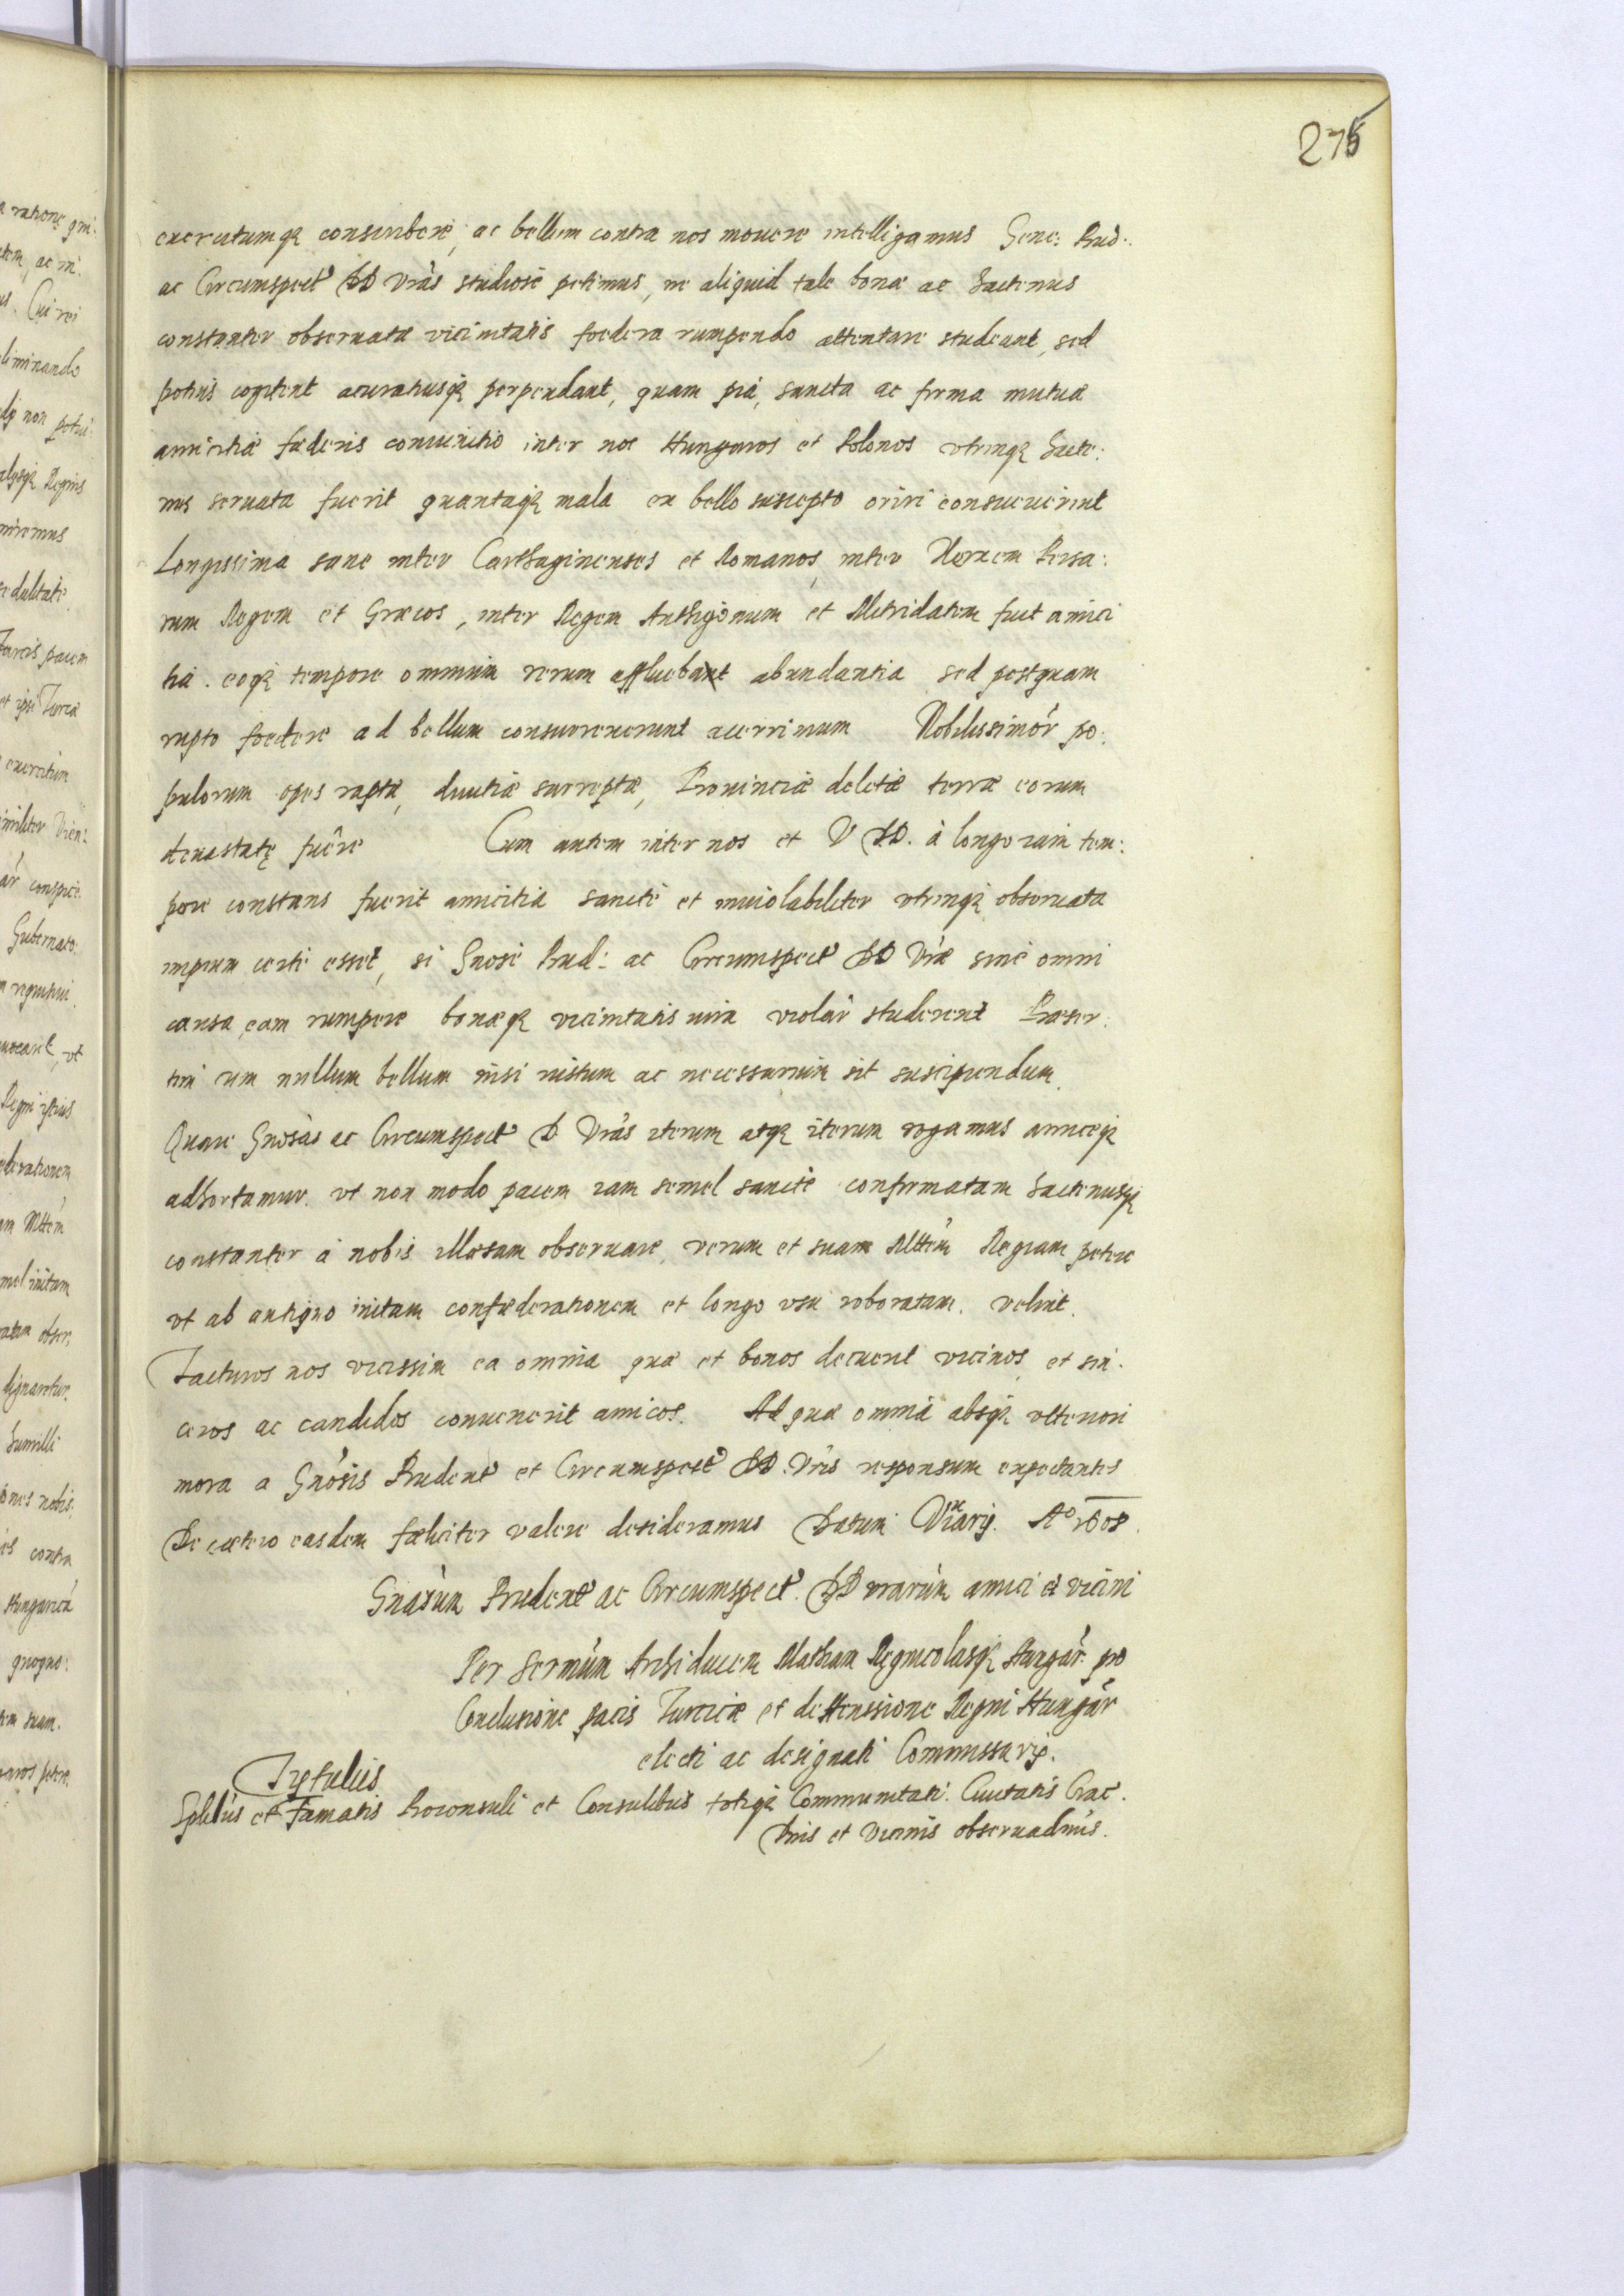 275
exercitumq̃ conscribere, ac bellum contra nos mouere intelligamus Gene: Prud:
ac Circumspect⁹ DD Vrãs studiosè petimus, ne aliquid tale bonæ ac hactenus
constanter obseruatæ vicinitatis foedera rumpendo attentare studeant, sed
potius cogitent acuratiusq̃ perpendant, quam pia, sancta ac firma mutuæ
amicitiæ fæderis coniunctio inter nos Hungaros et Polonos vtrinq̃ hacte:
nus seruata fuerit quantaq̃ mala ex bello suscepto oriri consueuerint
Longissima sane inter Carthaginenses et Romanos, inter Xerxem Persa:
rum Regem et Græcos, inter Regem Anthigonum et Metridatem fuit amici
tia. eoq̃ tempore omnium rerum affluebant abundantia sed postquam
rupto foedere ad bellum conuenerunt acerrimum Nobilissimor̃ po:
pulorum opes raptæ, diuitiæ surreptæ, Prouinciæ deletæ terræ eorum
deuastatę fuêre Cum autem inter nos et V DD. à longo iam tem:
pore constans fuerit amicitia sanctè et inuiolabiliter vtrinq̃ obseruata
impium certè esset, si Gnosè Prud: ac Circumspect⁹ DD Vræ sine omni
causa eam rumpere bonæq̃ vicinitatis iura violar̃ studerent Præser:
tim cum nullum bellum nisi iustum ac necessarium sit suscipiendum.
Quare Gnosas ac Circumspect⁹ D Vrãs iterum atq̃ iterum rogamus amiceq̃
adhortamur. vt non modo pacem iam semel sancitè confirmatam hactenusq̃
constanter à nobis illæsam obseruare, verum et suam Mttẽm Regiam petere
vt ab antiquo initam confæderationem et longo vsu roboratam. velint.
Facturos nos vicissim ea omnia quæ et bonos decuerit vicinos, et sin:
ceros ac candidos conuenerit amicos. Ad quæ omnia absq̃ vlteriori
mora a Gnõsis Prudent⁹ et Circumspect⁹ DD. Vrĩs responsum expectantes
De cætero easdem fæliciter valere desideramus Datum A⁰ 1605.
Gnarũm Prudent⁹ ac Circumspect⁹. DD vrarũm amici et vicini
Per Sermũm Archiducem Mathiam Regnicolasq̃ Hungar̃. pro
Conclusione pacis Turcicæ et deffensione Regni Hungar̃
electi ac designati Commissarÿ.
Tytulus
Splibũs et Famatis Proconsuli et Consulibus totiq̃ Communitati. Ciuitatis Crac.
Dnis et Vicinis obseruadmĩs.